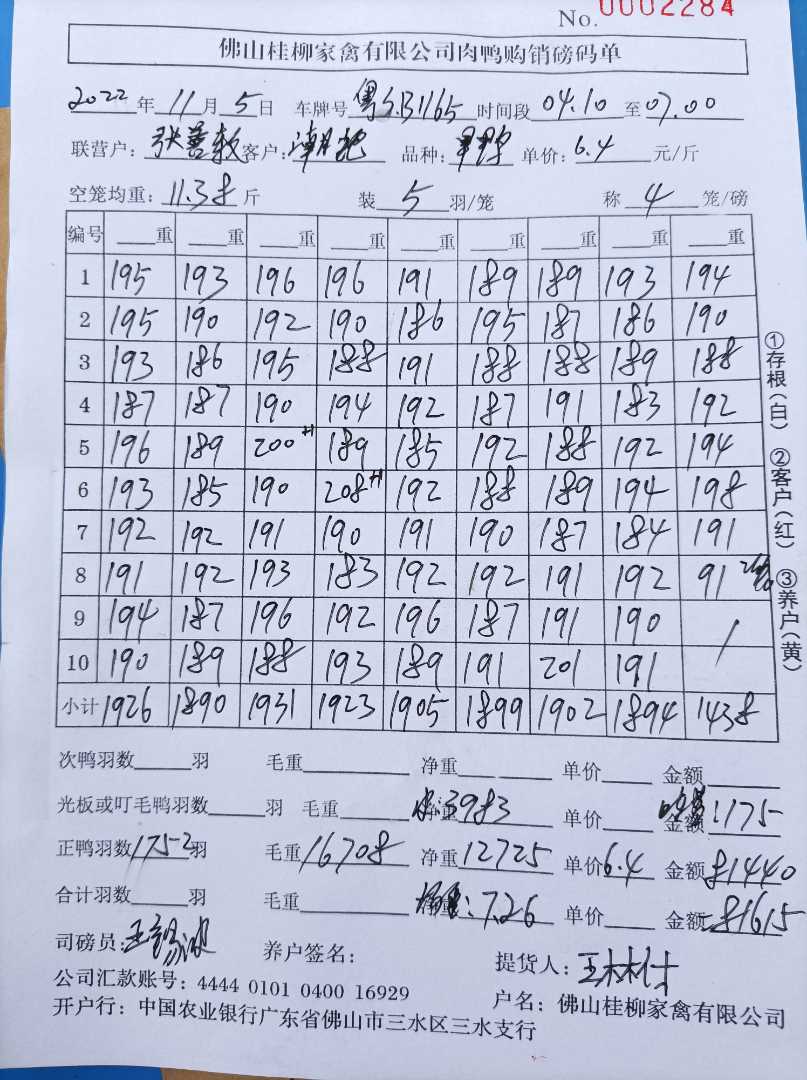 No. 0002284
佛山桂柳家禽有限公司肉鸭购销磅码单
2022年11月5日 车牌号 粤S.B1165 时间段 04.10 至 07.00
联营户: 张善 客户: 潮 品种: 单价: 6.4 元/斤
空笼均重: 11.38 斤 装 5 羽/笼 称 4 笼/磅
编号 重 重 重 重 重 重 重 重 重
1 195 193 196 196 191 189 189 193 194
2 195 190 192 190 186 195 187 186 190
3 193 186 195 188 191 188 188 189 188
4 187 187 190 194 192 187 191 183 192
5 196 189 200+1 189 185 192 188 192 194
6 193 185 190 208+1 192 188 189 194 198
7 192 192 191 190 191 190 187 184 191
8 191 192 193 183 192 192 191 192 91
9 194 187 196 192 196 187 191 190 /
10 190 189 188 193 189 191 201 191
小计 1926 1890 1931 1923 1905 1899 1902 1894 1438
次鸭羽数 羽 毛重 净重 单价 金额
光板或叮毛鸭羽数 羽 毛重 净重 :3983 单价 金额 :175
正鸭羽数 1752 羽 毛重 16708 净重 12725 单价 6.4 金额 81440
合计羽数 羽 毛重 净重 :7.26 单价 金额 =81615
司磅员: 王 养户签名: 提货人: 王林
公司汇款账号: 4444 0101 0400 16929 户名: 佛山桂柳家禽有限公司
开户行: 中国农业银行广东省佛山市三水区三水支行
①存根(白) ②客户(红) ③养户(黄)